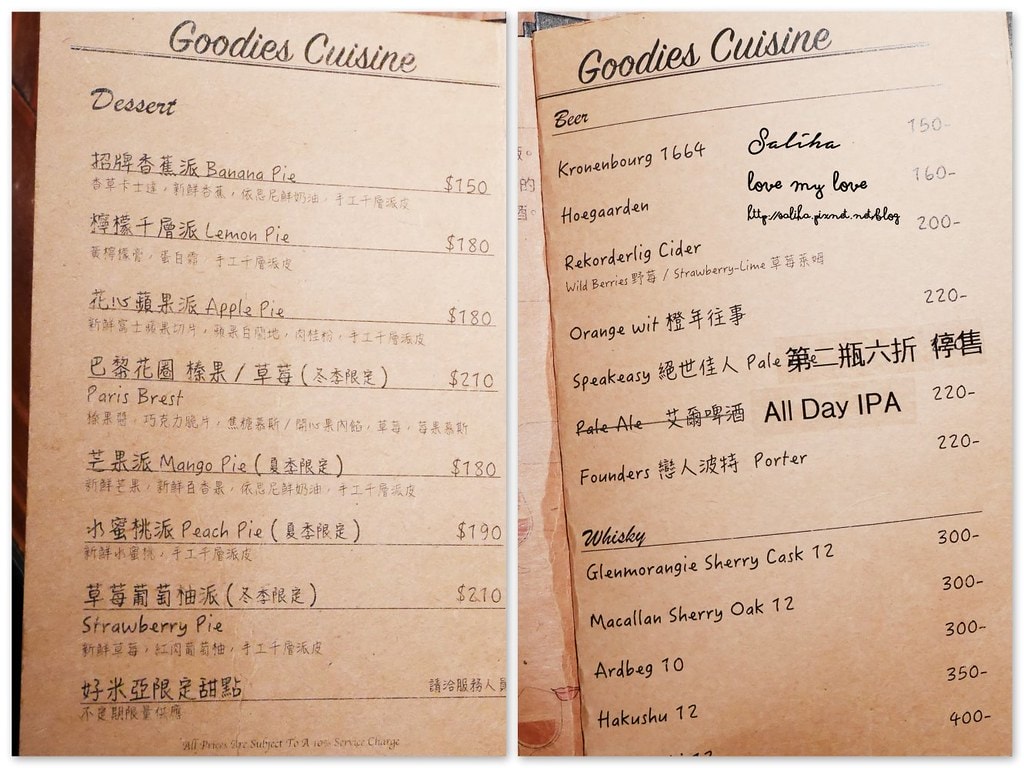 Goodies Cuisine
Dessert
招牌香蕉派 Banana Pie $150
香草卡士達，新鮮香蕉，依思尼鮮奶油，手工千層派皮
檸檬千層派 Lemon Pie $180
黃檸檬膏，蛋白霜，手工千層派皮
花心蘋果派 Apple Pie $180
新鮮富士蘋果切片，蘋果白蘭地，肉桂粉，手工千層派皮
巴黎花圈 榛果 / 草莓 (冬季限定) $210
Paris Brest
榛果醬，巧克力脆片，焦糖慕斯 / 開心果內餡，草莓，莓果慕斯
芒果派 Mango Pie (夏季限定) $180
新鮮芒果，新鮮百香果，依思尼鮮奶油，手工千層派皮
水蜜桃派 Peach Pie (夏季限定) $190
新鮮水蜜桃，手工千層派皮
草莓葡萄柚派 (冬季限定) $210
Strawberry Pie
新鮮草莓，紅肉葡萄柚，手工千層派皮
好米亞限定甜點 請洽服務人員
不定期限量供應
All Prices Are Subject To A 10% Service Charge
Goodies Cuisine
Beer
Kronenbourg 1664 150-
Saliha
love my love
http://saliha.pixnet.net/blog
Hoegaarden 160-
Rekorderlig Cider 200-
Wild Berries 野莓 / Strawberry-Lime 草莓萊姆
Orange wit 橙年往事 220-
Speakeasy 絕世佳人 Pale 第二瓶六折 停售
Pale Ale 艾爾啤酒 All Day IPA 220-
Founders 戀人波特 Porter 220-
Whisky
Glenmorangie Sherry Cask 12 300-
Macallan Sherry Oak 12 300-
Ardbeg 10 300-
Hakushu 12 350-
400-